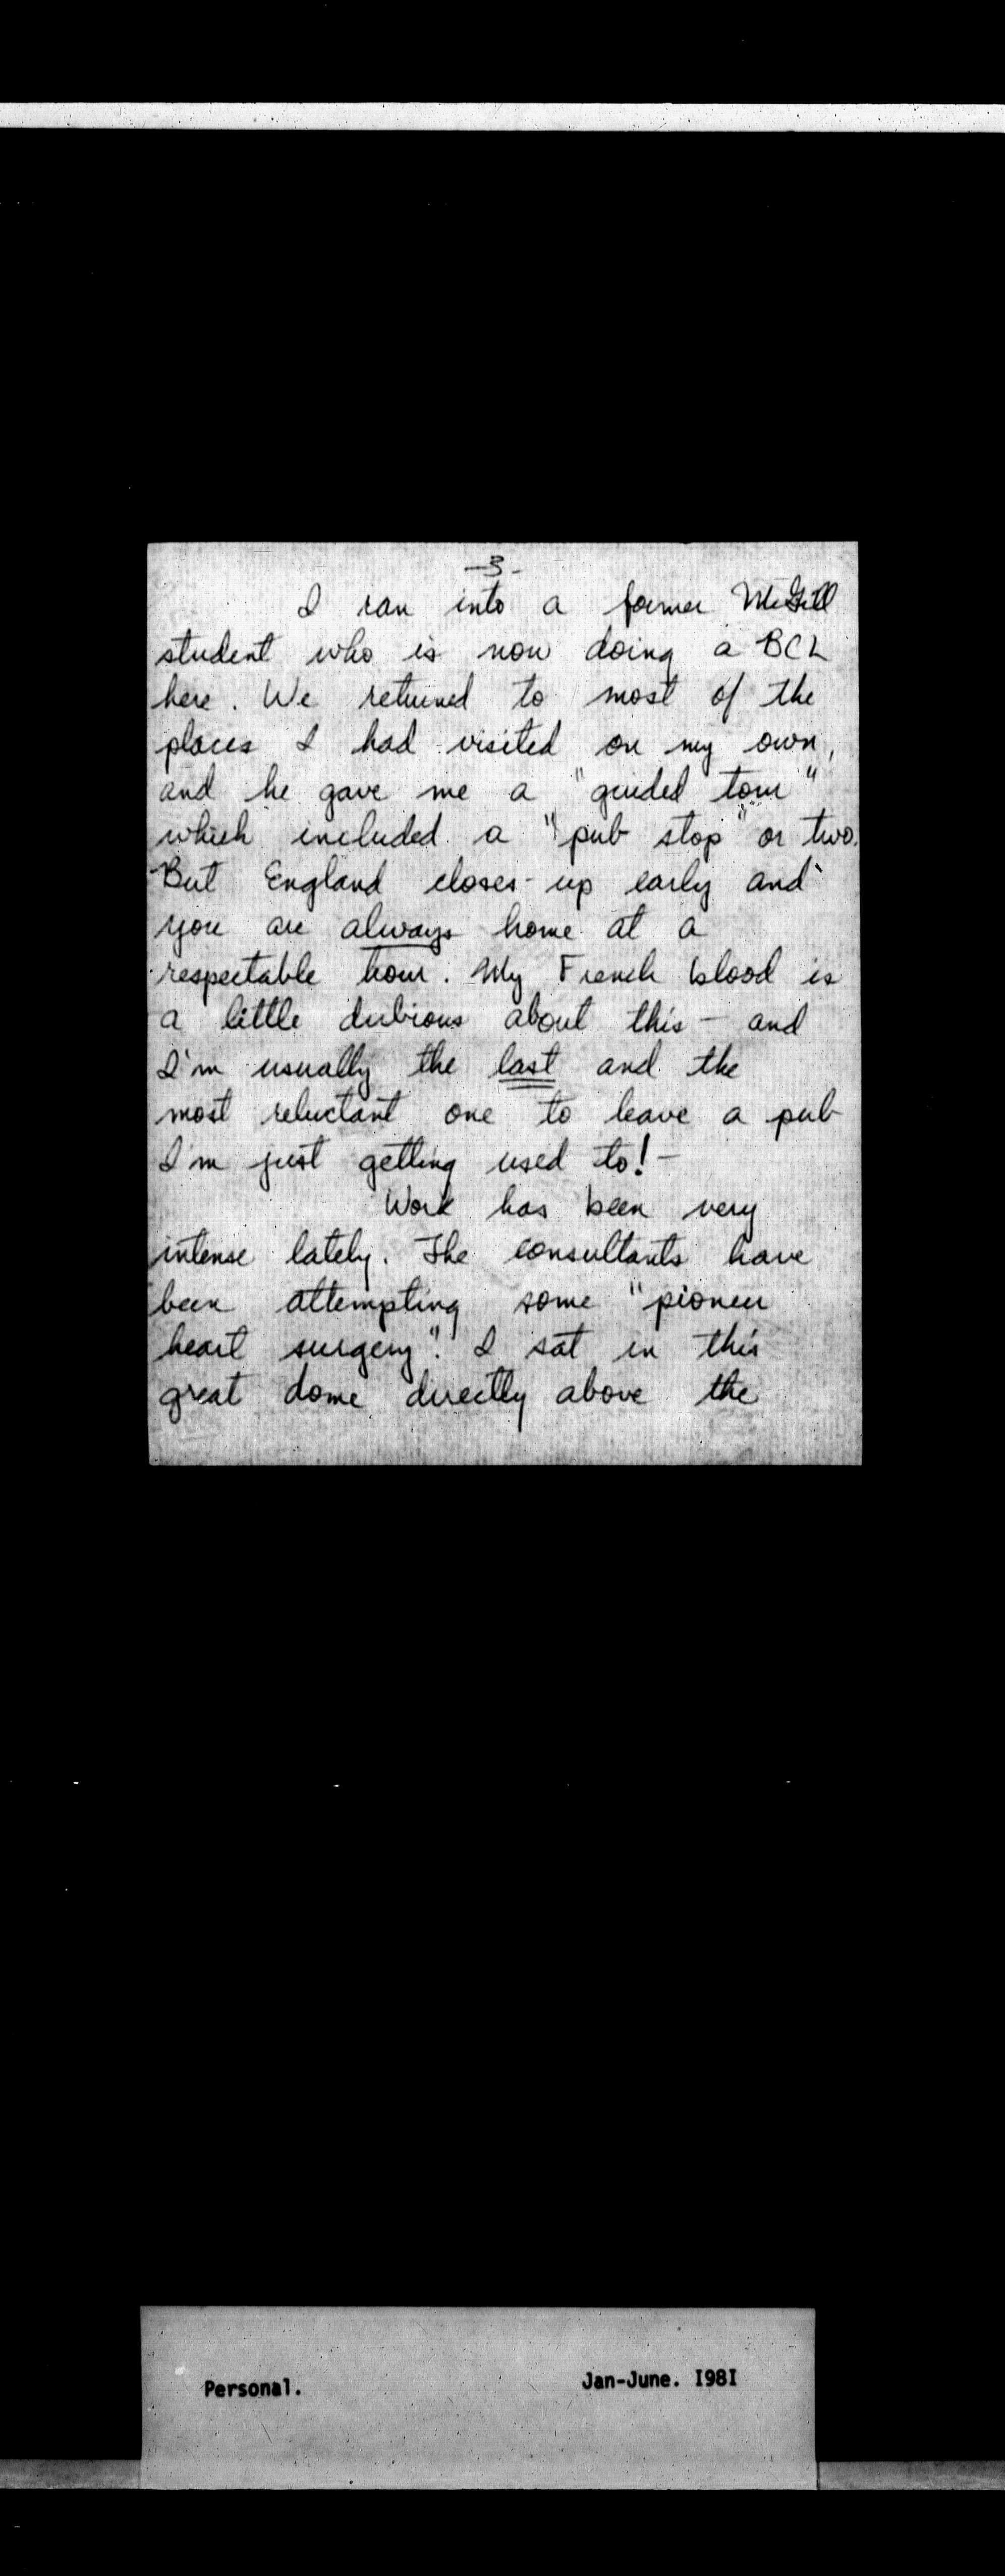 -3-
I ran into a former McGill
student who is now doing a BCL
here. We returned to most of the
places I had visited on my own,
and he gave me a "guided tour"
which included a "pub stop" or two.
But England closes-up early and
you are always home at a
respectable hour. My French blood is
a little dubious about this - and
I'm usually the last and the
most reluctant one to leave a pub
I'm just getting used to! -
Work has been very
intense lately. The consultants have
been attempting some "pioneer
heart surgery". I sat in this
great dome directly above the
Personal. Jan-June. I98I